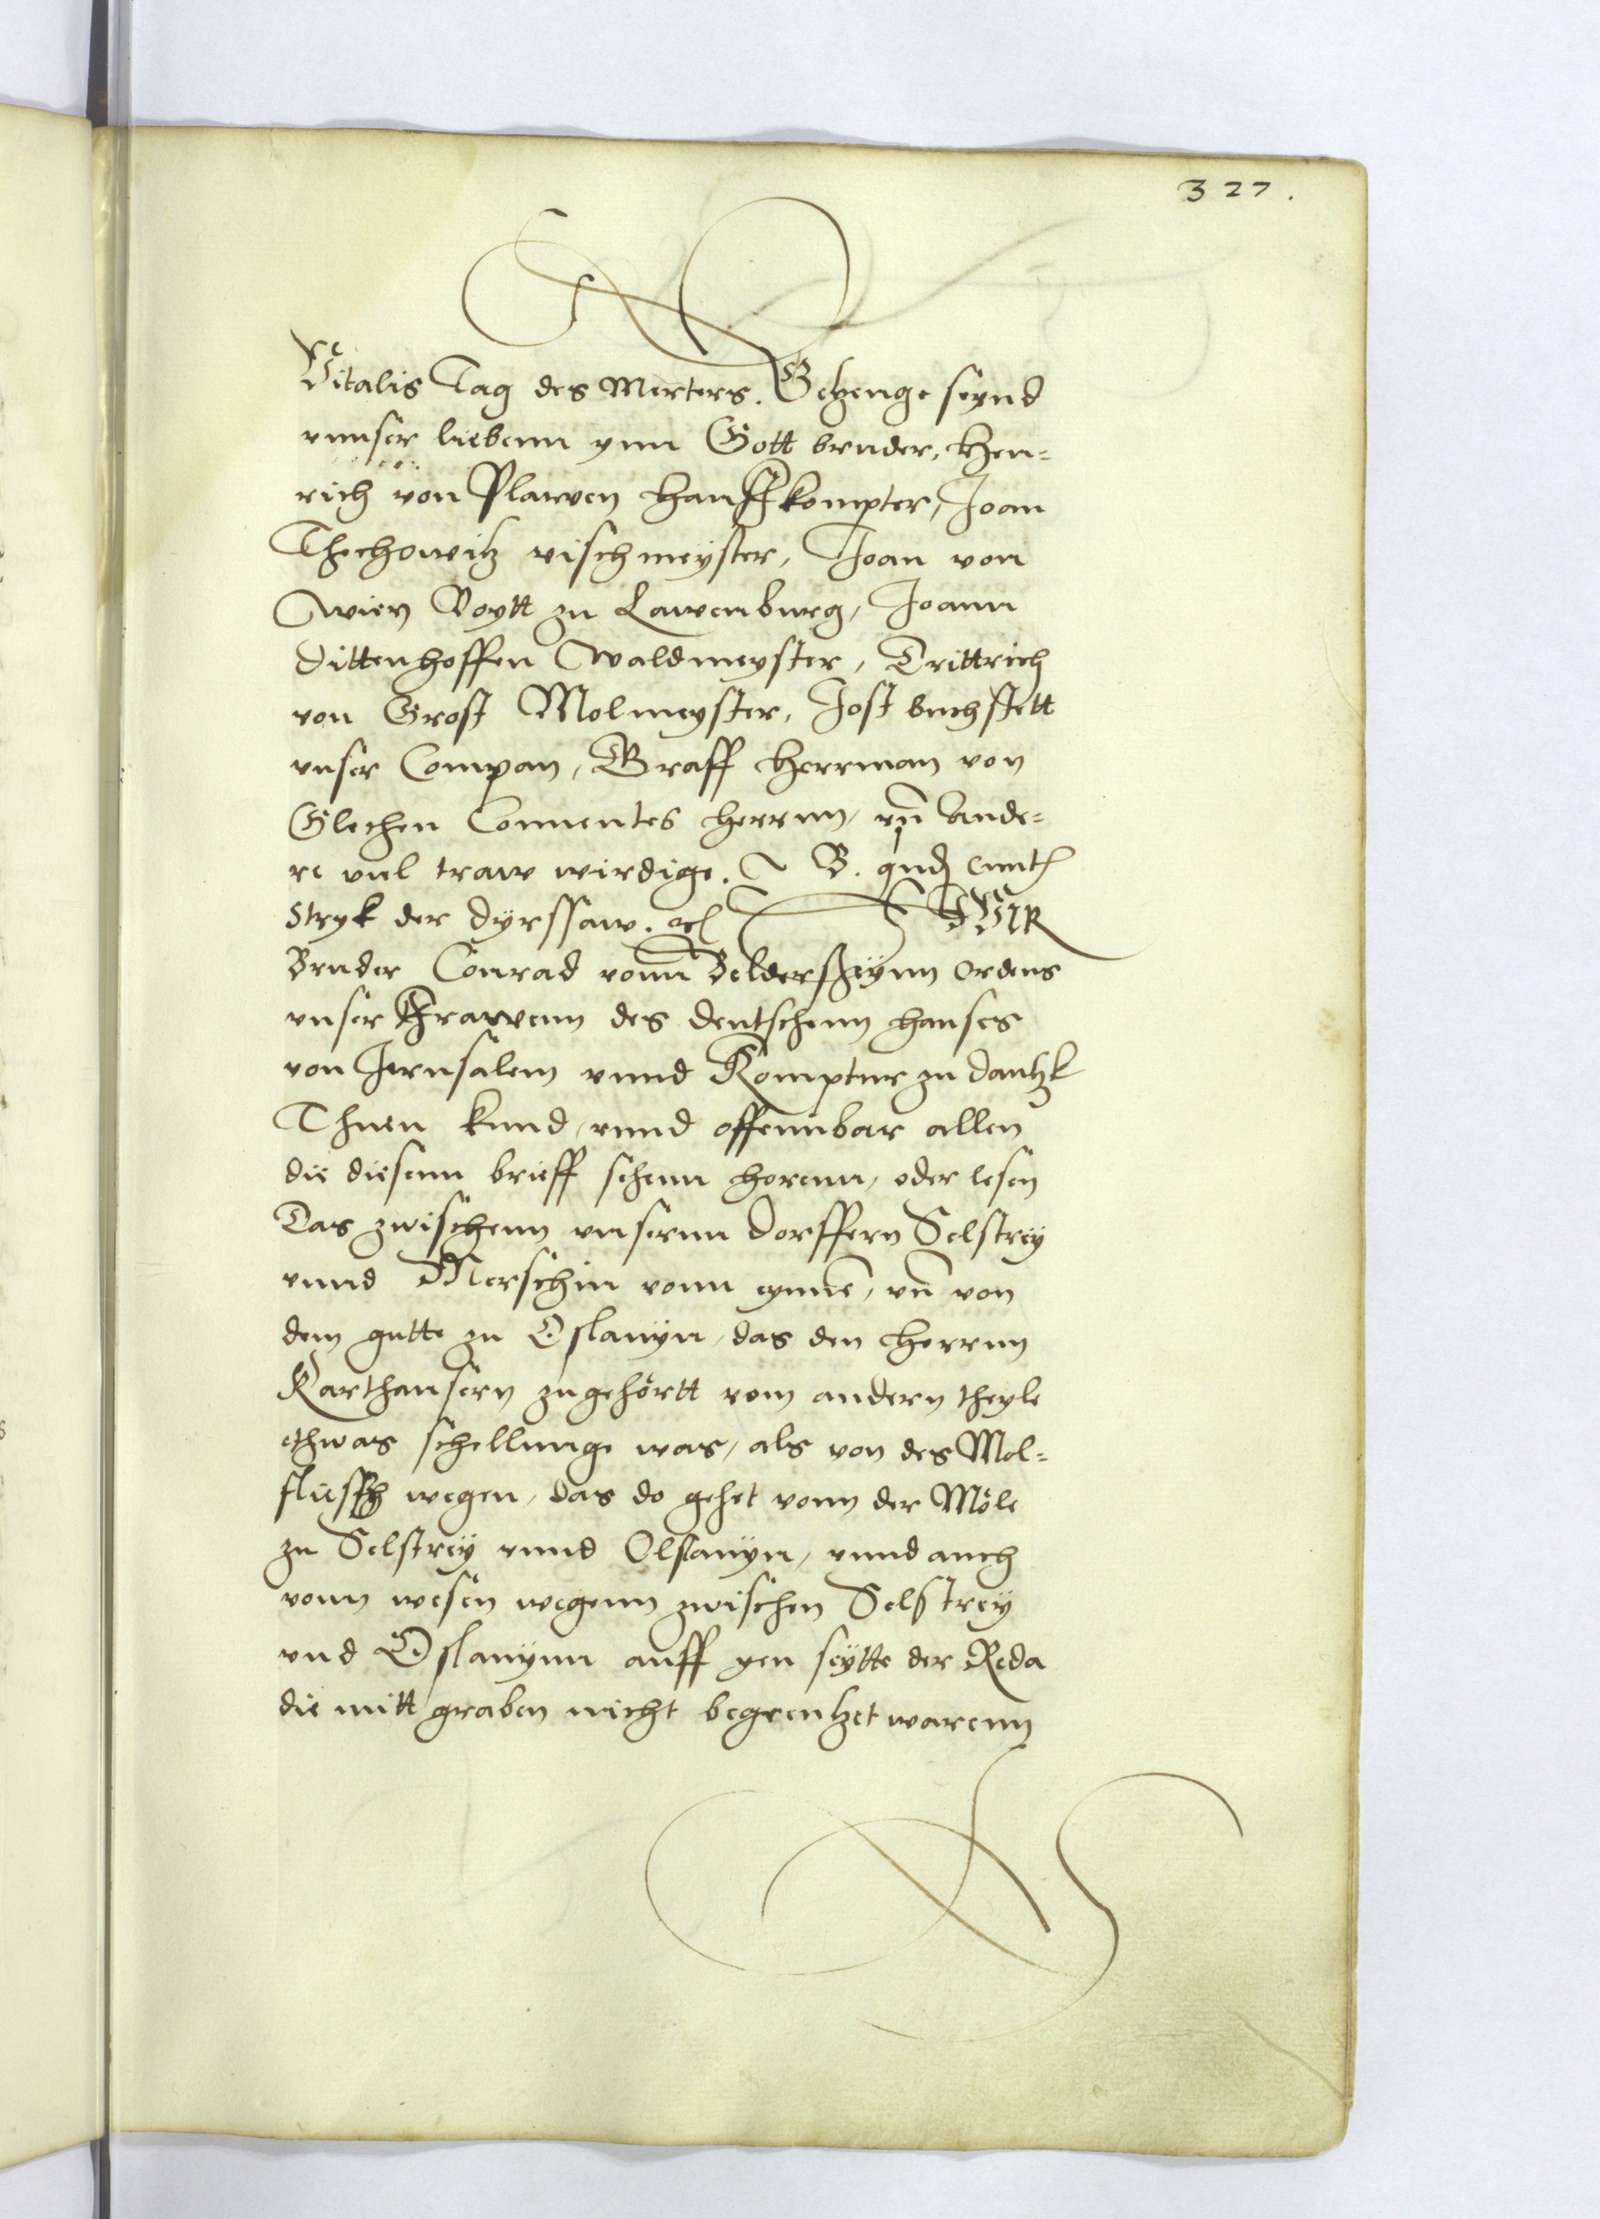 327.
Vitalis Tag des Merters. Getzenge seynd
vnnser liebenn ynn Gott bruder, Hen-
rich von Plawen Haußkompter, Joan
Thechowitz vischmeyster, Joan von
Wien Voytt zu Lawenburg, Joann
Dittenhoffen Waldmeyster, Dittrich
von Grost Molmeyster, Jost buchstett
vnser Compan, Graff Herrman von
Glechen Conuentes herrnn, vn̄ Ande-
re viel traw wirdige. B.
stryk der Dyrssaw. WIR
Bruder Conrad vonn Beldersheymn ordens
vnser Frawenn des deutschenn hauses
von Jerusalem vnnd Komptur zu Dantzk
Thuen kund, vnnd offennbar allen
die diesenn brieff sehenn horenn, oder lesen
Das zwischenn vnsernn dorffern Selstrey
vnnd Merschin vonn eynnē, vn̄ von
dem gutte zu Oslanyn, das den herrnn
Karthausern zugehörtt vom andern theyle
ethwas schellunge was, als von des Mol-
fliessz wegen, das do gehet vonn der Möle
zu Selstrey vnnd Olslanyn, vnnd auch
vonn wesen wegenn zwischen Selstrey
vnd Oslanynn auff yen seytte der Reda
die mitt graben nicht begrentzet warenn